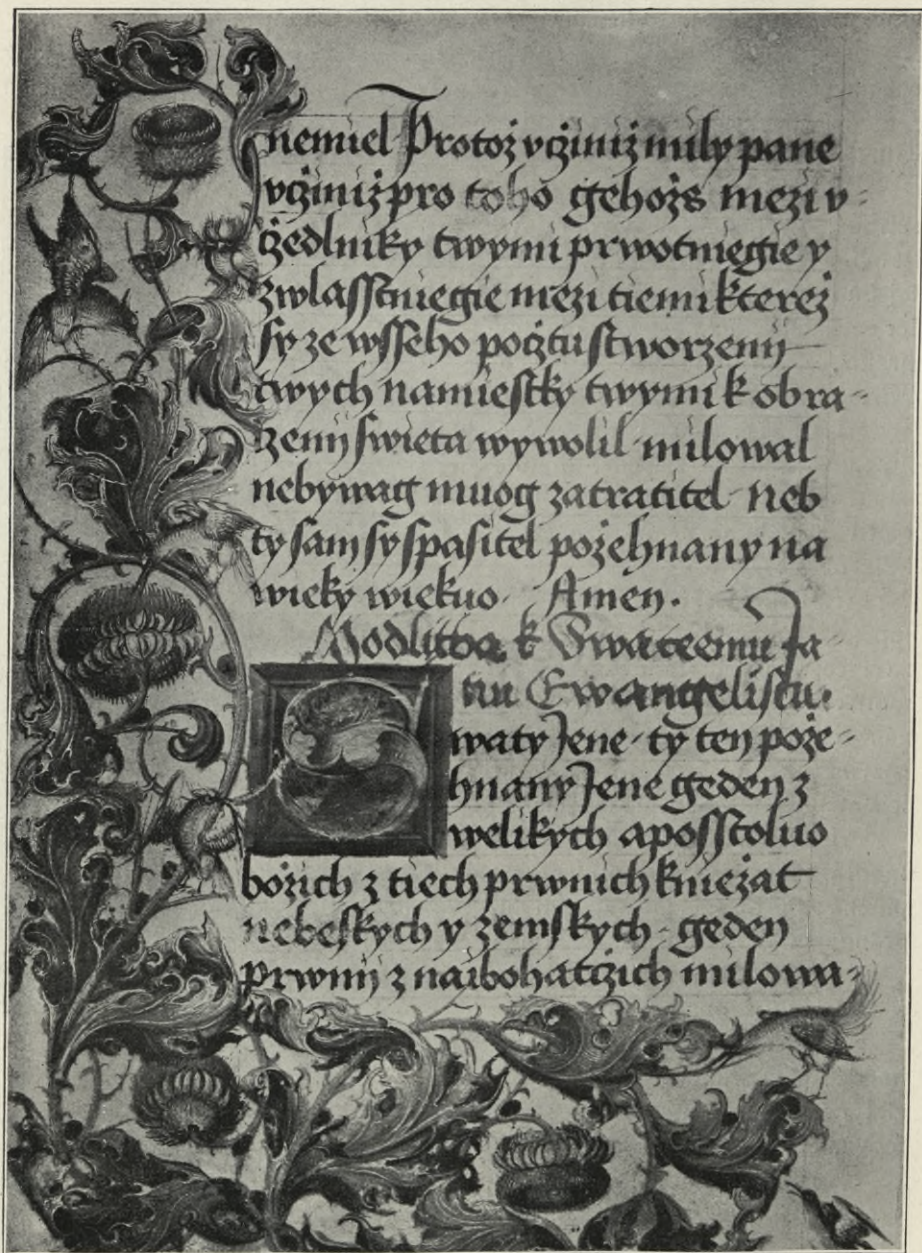 nemiel Protoż vcżiniż mily pane
vcżiniż pro toho gehożs mezi v-
cżedlniky twymi prwotniegie y
zwlasstniegie mezi tiemi kterez
sy ze wsseho pocżtu stworzenij
twych namiestky twymi k obra-
zenij swieta wywolil milowal
nebywag muog zatratitel neb
ty sam sy spasitel pożehnany na
wieky wiekuo. Amen.
Modlitba k Swateemu Ja
nu Ewangelistu.
Swaty Jene ty ten poże-
hnany Jene geden z
welikych aposstoluo
bozich z tiech prwnich kniezat
nebeskych y zemskych geden
prwnij z naibohatcżich milowa-